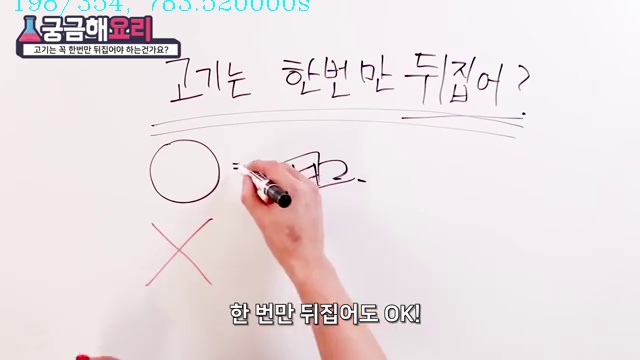 198/354, 783.520000s
궁금해요리
고기는 꼭 한번만 뒤집어야 하는건가요?
고기는 한번만 뒤집어?
한 번만 뒤집어도 OK!